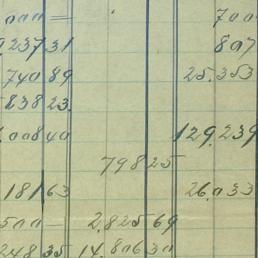 000 — 700
9,237 31 807
740 89 25.353
838 23.
,008 40 129,239
798 25
181 63 26,033
500 — 2,825 69
248 35 14,806 30